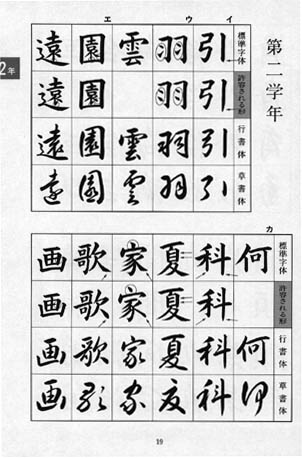 第二学年
イ ウ エ
標準字体 引 羽 雲 園 遠
許容される形 引 羽 園 遠
行書体 引 羽 雲 園 遠
草書体 引 羽 雲 園 遠
2年
カ
標準字体 何 科 夏 家 歌 画
許容される形 科 夏 家 歌 画
行書体 何 科 夏 家 歌 画
草書体 何 科 夏 家 歌 画
19